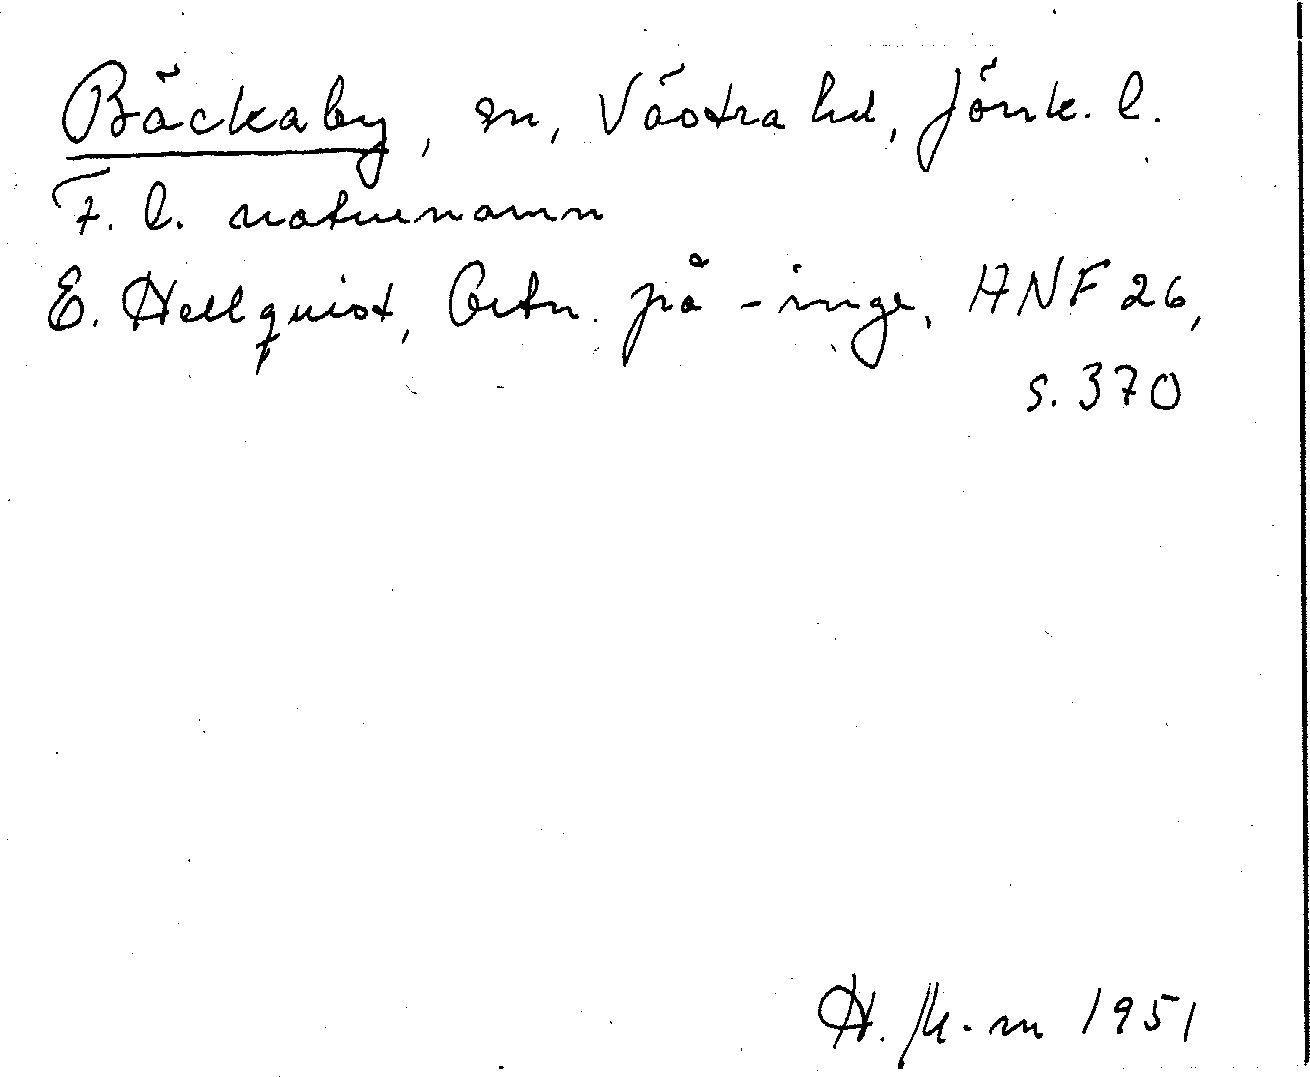 Bäckaby, sn, Västra hd, Jönk. l.
F. l. naturnamn
E. Hellquist, Ortn. på -inge, ANF 26,
s. 370
1951